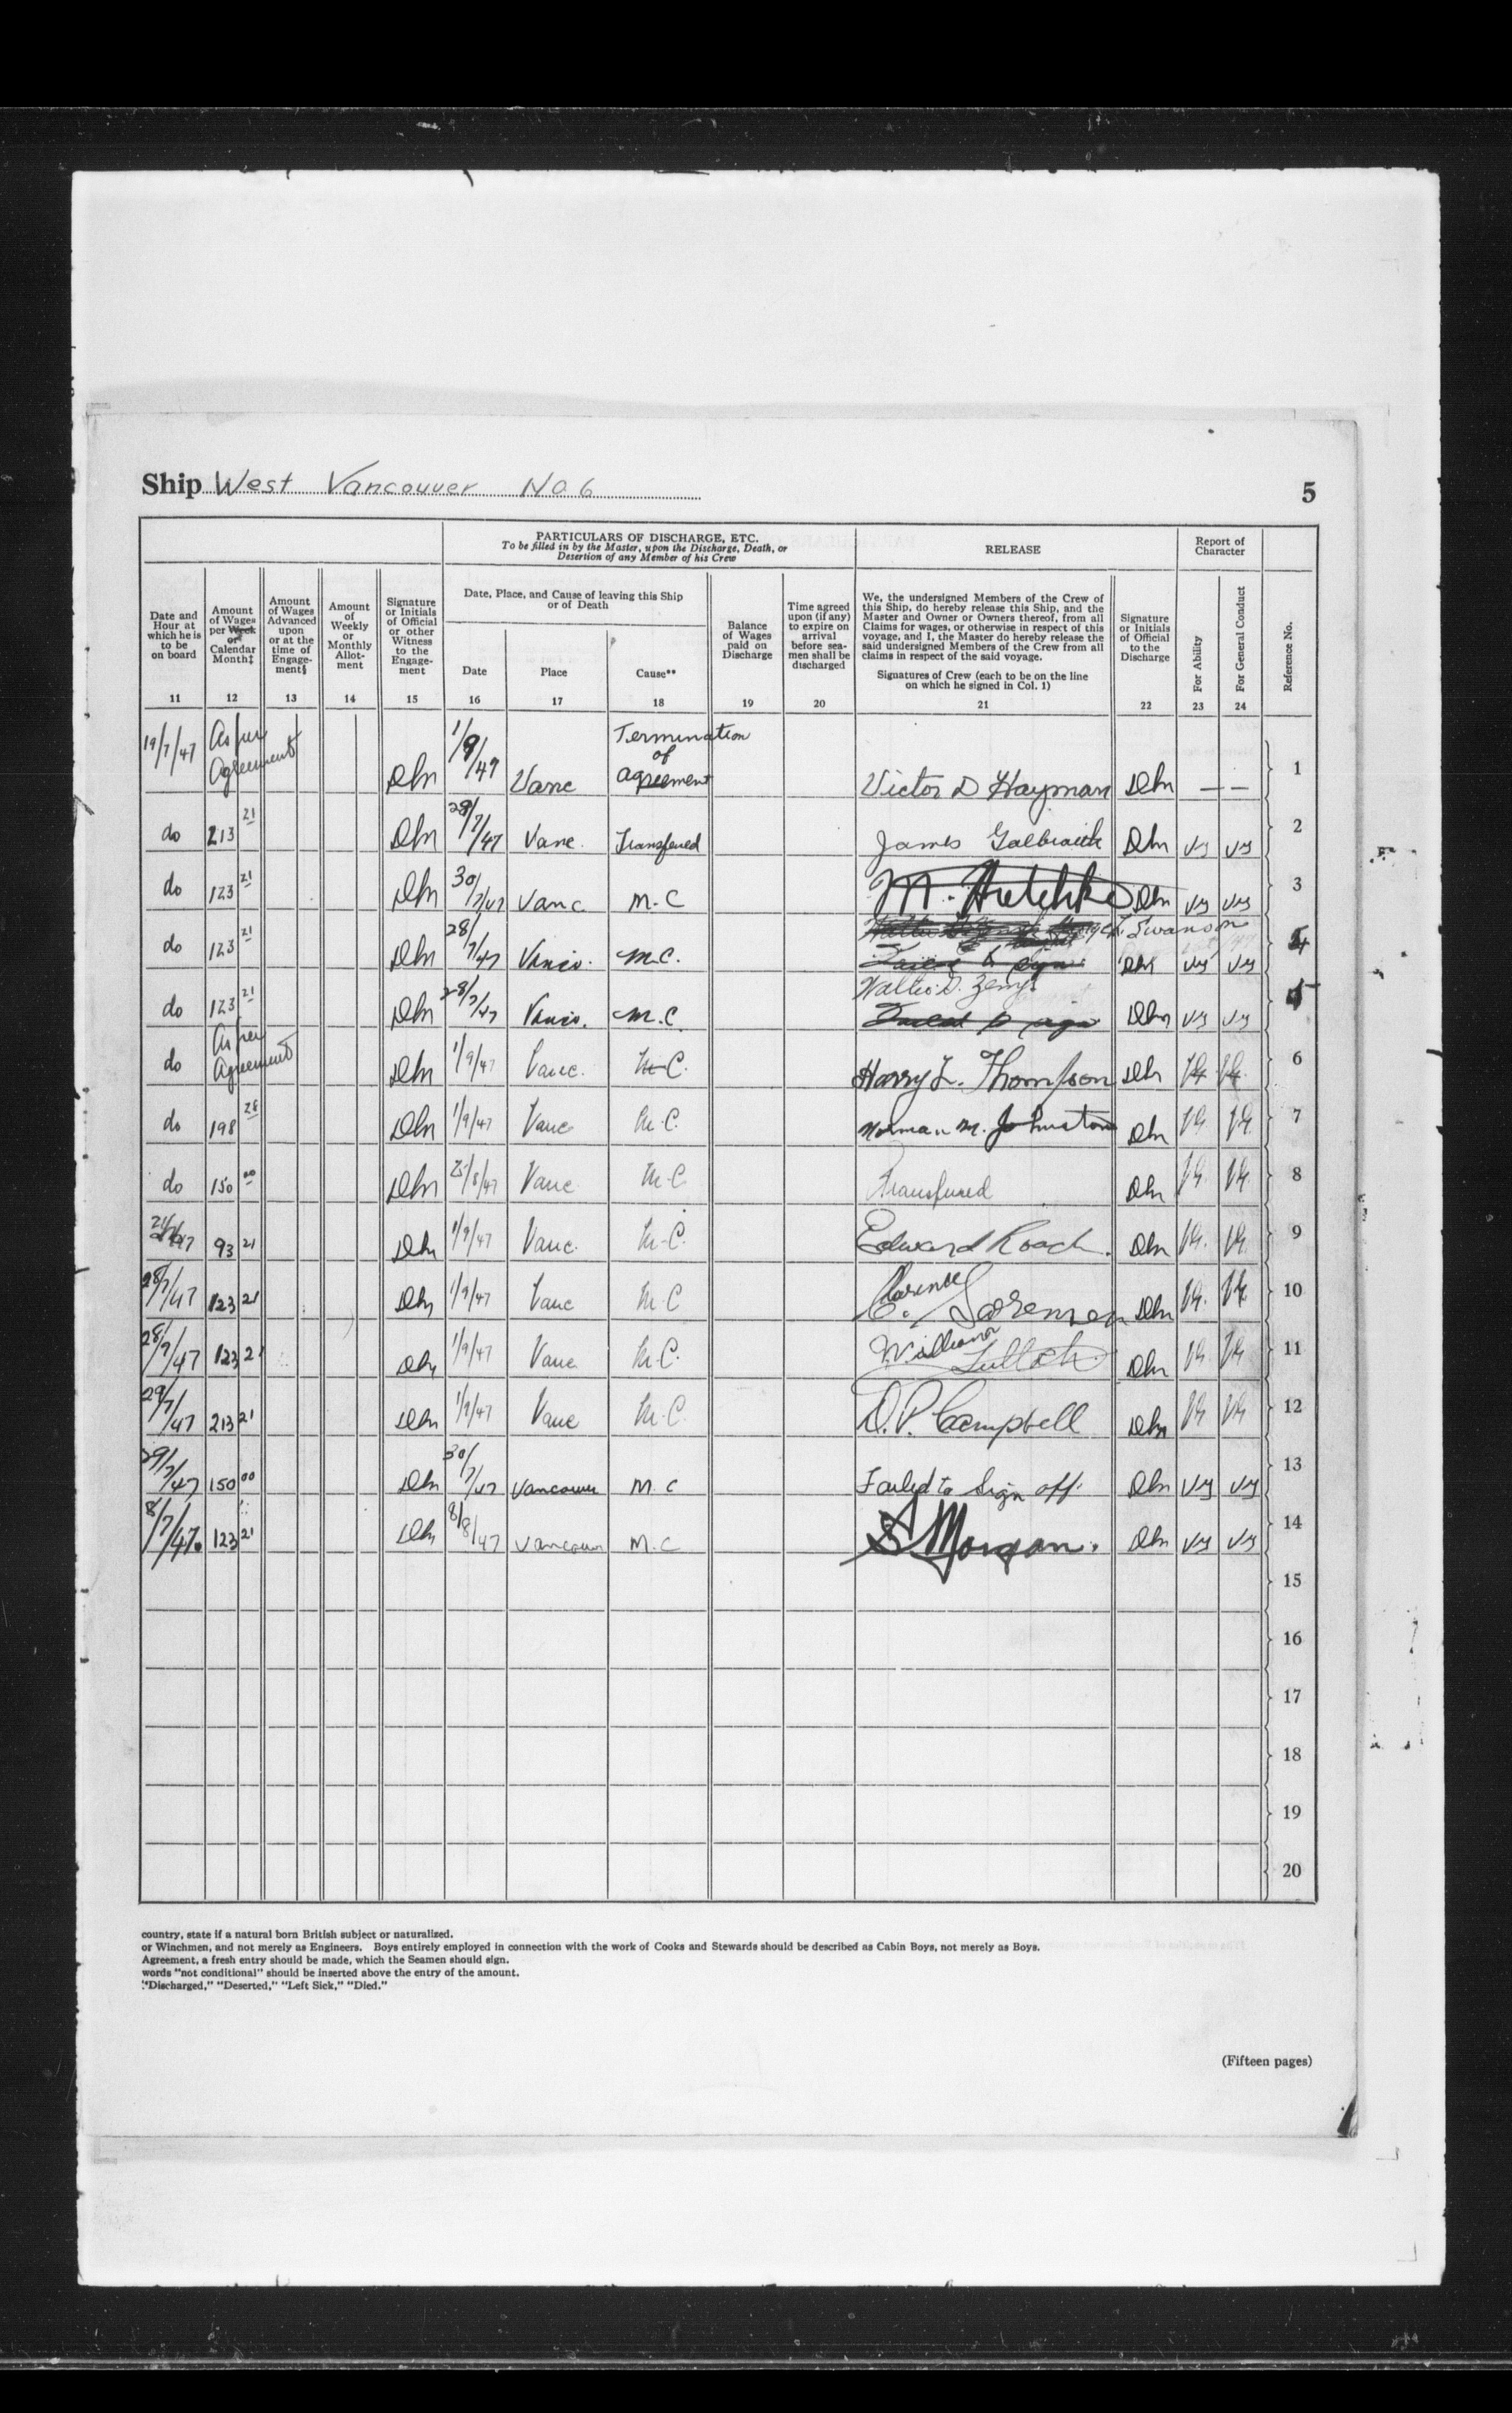 Ship West Vancouver No 6
5
PARTICULARS OF DISCHARGE, ETC.
To be filled in by the Master, upon the Discharge, Death, or
Desertion of any Member of his Crew
RELEASE
Report of
Character
Date and
Hour at
which he is
to be
on board
11
Amount
of Wages
per Week
or
Calendar
Month‡
12
Amount
of Wages
Advanced
upon
or at the
time of
Engage-
ment§
13
Amount
of
Weekly
or
Monthly
Allot-
ment
14
Signature
or Initials
of Official
or other
Witness
to the
Engage-
ment
15
Date, Place, and Cause of leaving this Ship
or of Death
Date
16
Place
17
Cause**
18
Balance
of Wages
paid on
Discharge
19
Time agreed
upon (if any)
to expire on
arrival
before sea-
men shall be
discharged
20
We, the undersigned Members of the Crew of
this Ship, do hereby release this Ship, and the
Master and Owner or Owners thereof, from all
Claims for wages, or otherwise in respect of this
voyage, and I, the Master do hereby release the
said undersigned Members of the Crew from all
claims in respect of the said voyage.
Signatures of Crew (each to be on the line
on which he signed in Col. 1)
21
Signature
or Initials
of Official
to the
Discharge
22
For Ability
23
For General Conduct
24
Reference No.
19/7/47 As per Agreement Vanc Termination of agreement Victor D Hayman — — 1
do 213 21 28/7/47 Vanc. Transfered James Galbraith VG VG 2
do 123 21 30/7/47 Vanc. M.C VG VG 3
do 123 21 28/7/47 Vanco. M.C. Swanson VG VG 4
do 123 21 28/7/47 Vanco. M.C. Walter D. VG VG 5
do As per Agreement 1/9/47 Vanc. M.C. Harry L. Thompson VG VG 6
do 198 28 1/9/47 Vanc M.C. Norman M. Johnston VG VG 7
do 150 00 /8/47 Vanc M.C Transfered VG VG 8
93 21 1/9/47 Vanc. M.C. Edward Roach. VG VG 9
28/7/47 123 21 1/9/47 Vanc M.C Clarence C. Sorensen VG VG 10
28/7/47 123 21 1/9/47 Vanc M.C. William Tulloch VG VG 11
29/7/47 213 21 1/9/47 Vanc M.C. D.P. Campbell VG VG 12
29/7/47 150 00 30/7/47 Vancouver M.C Failed to Sign off. VG VG 13
8/7/47. 123 21 8/8/47 Vancouver M.C S Morgan. VG VG 14
15
16
17
18
19
20
country, state if a natural born British subject or naturalized.
or Winchmen, and not merely as Engineers. Boys entirely employed in connection with the work of Cooks and Stewards should be described as Cabin Boys, not merely as Boys.
Agreement, a fresh entry should be made, which the Seamen should sign.
words "not conditional" should be inserted above the entry of the amount.
"Discharged," "Deserted," "Left Sick," "Died."
(Fifteen pages)